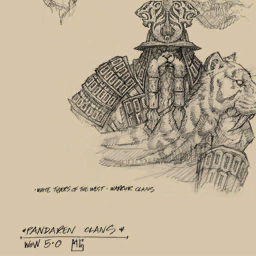 •WHITE TIGERS OF THE WEST - WARRIOR CLANS
*PANDAREN CLANS*
WoW 5.0